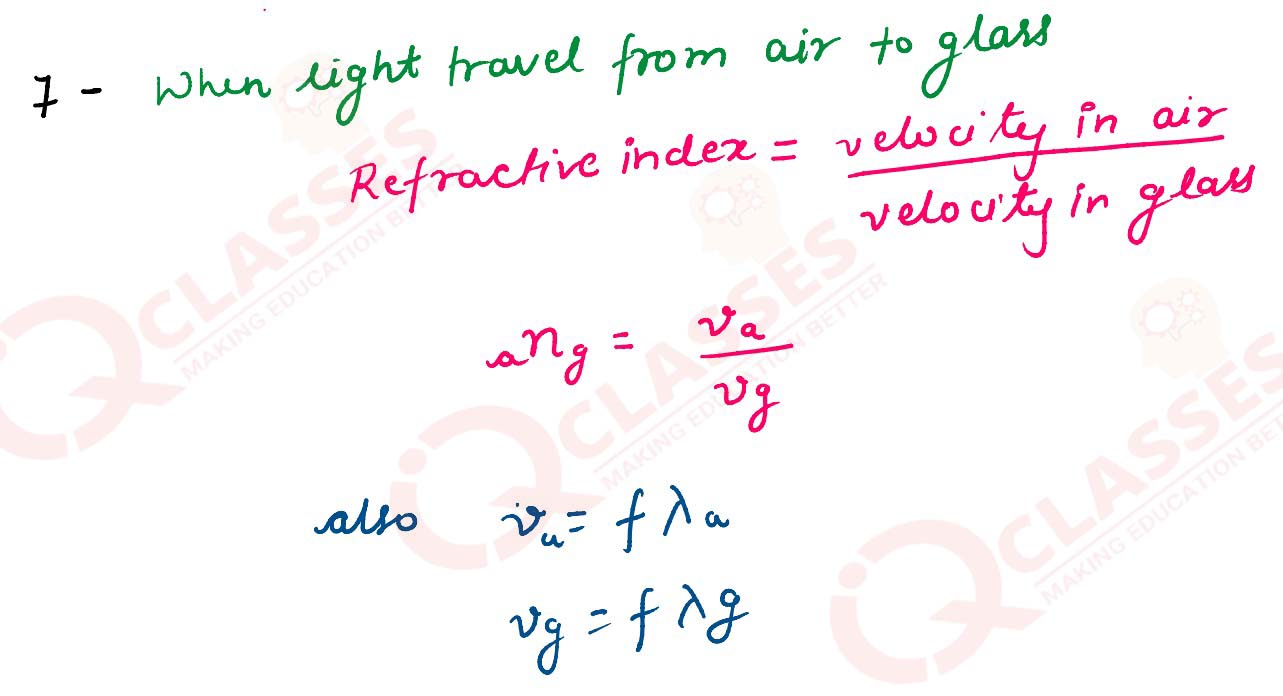 7 - When light travel from air to glass
Refractive index = velocity in air / velocity in glass
ₐn_g = v_a / v_g
also v_a = f λ_a
v_g = f λ_g
CLASSES
MAKING EDUCATION BETTER
CLASSES
MAKING EDUCATION BETTER
CLASSES
MAKING EDUCATION BET